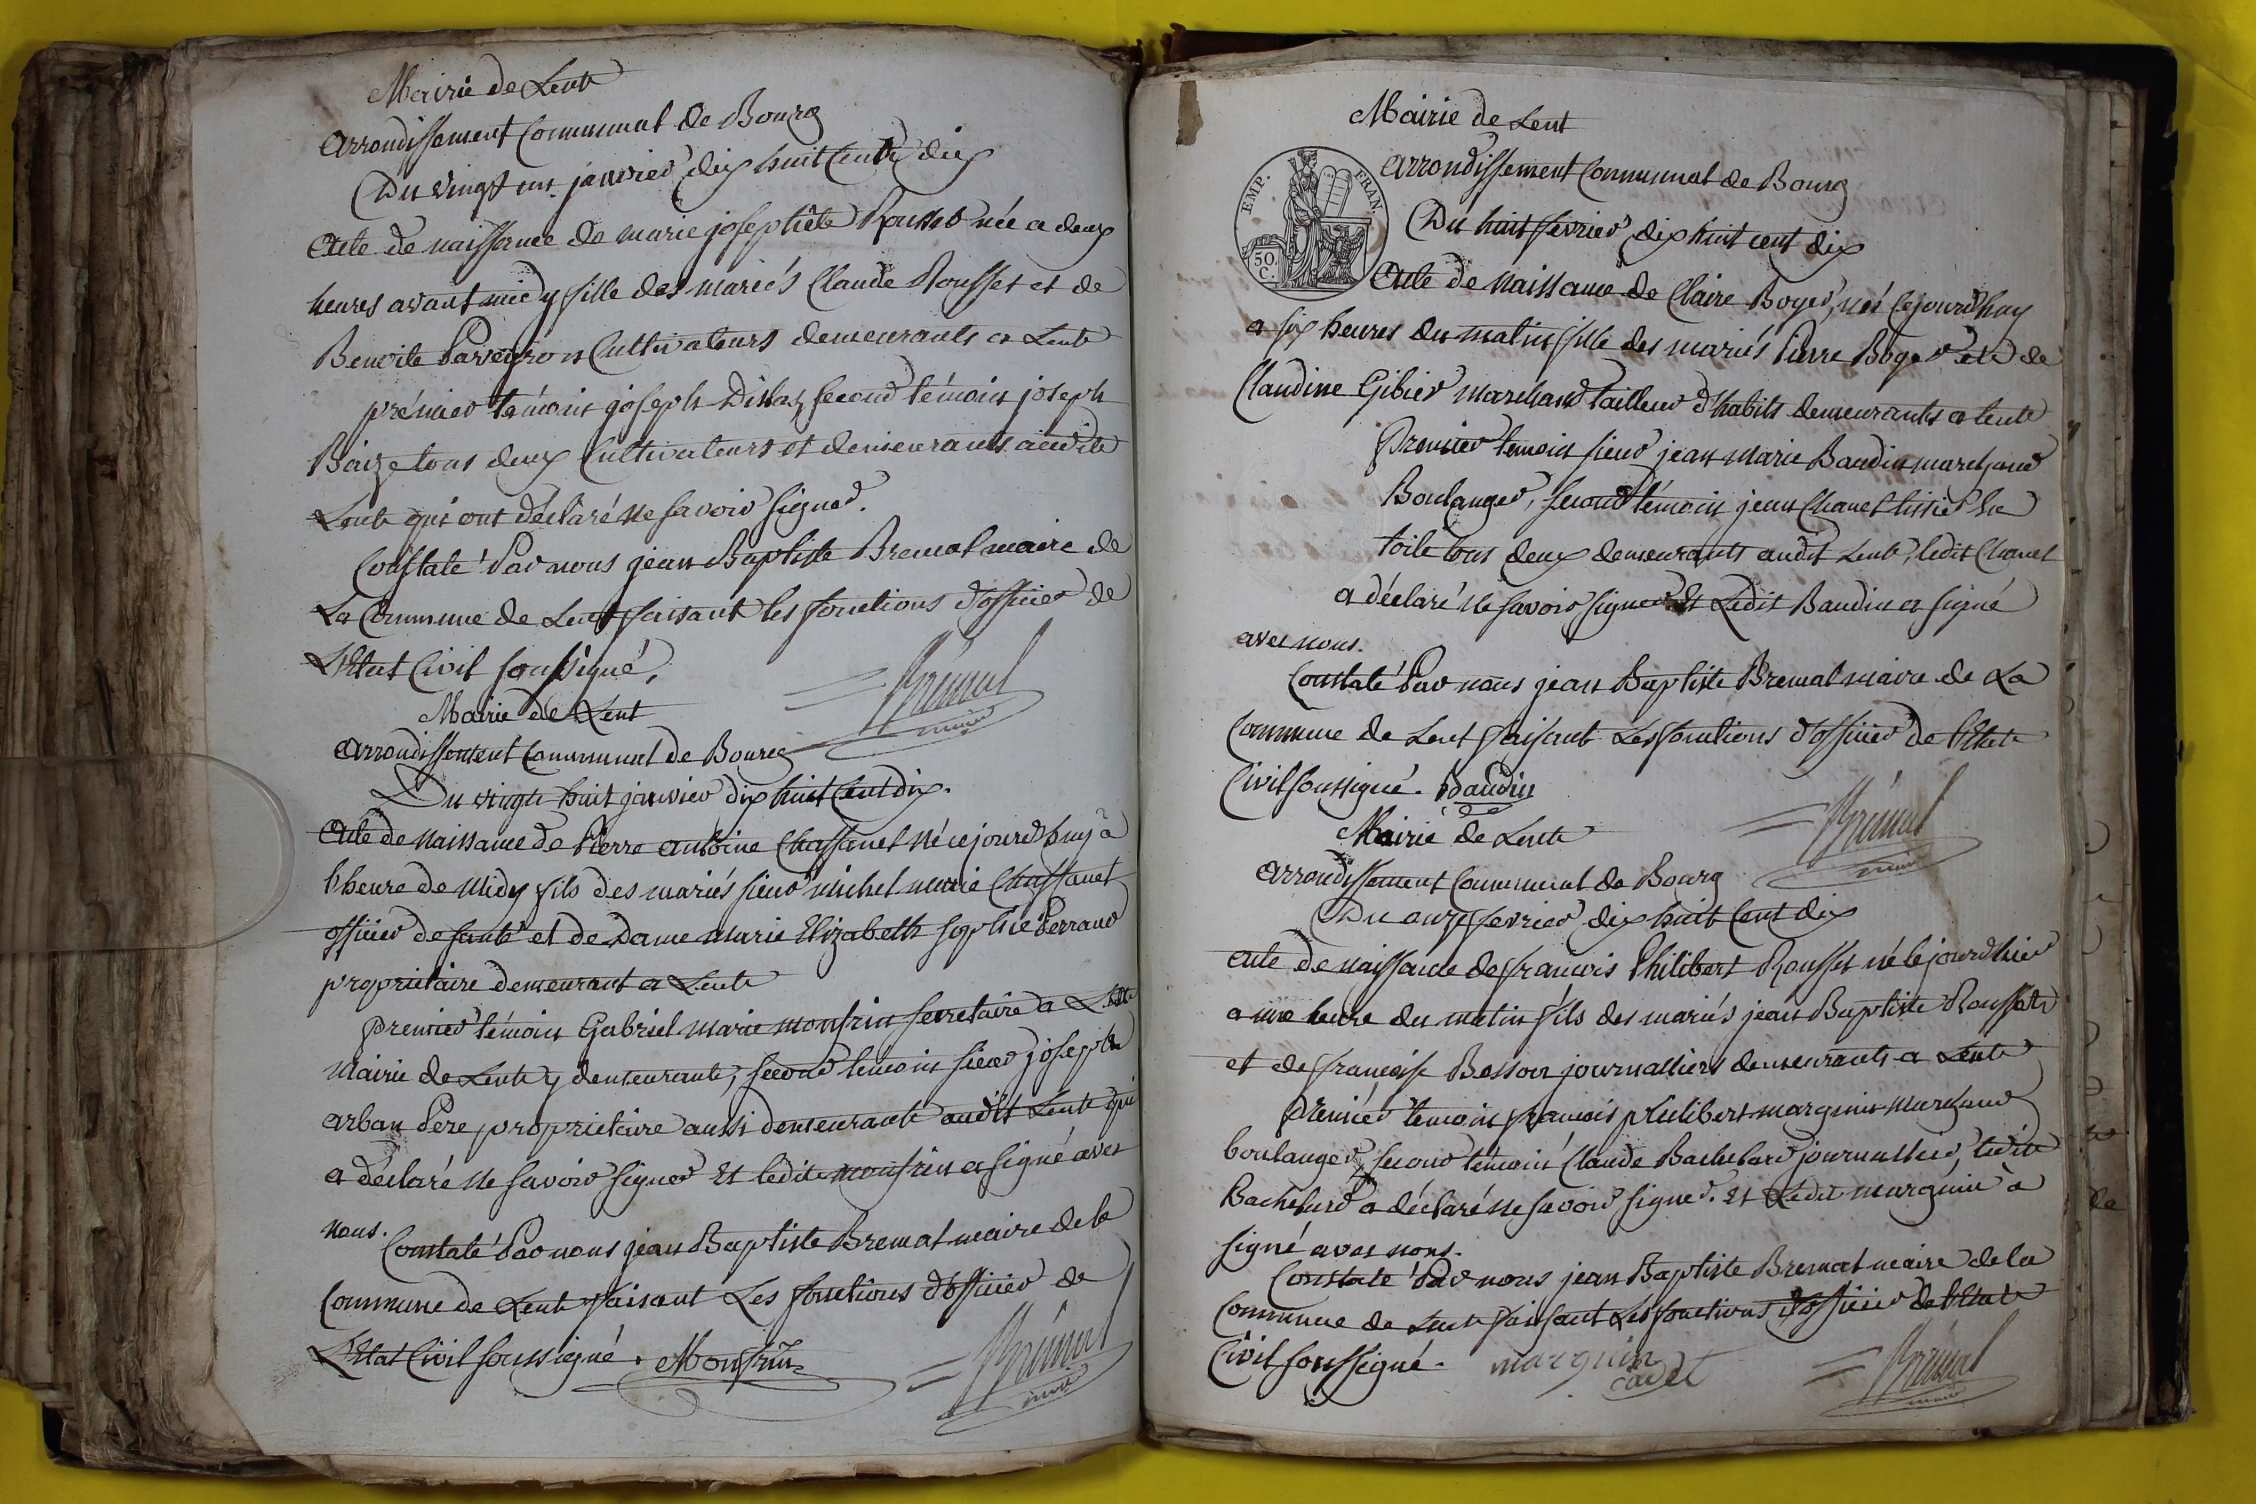 Mairie de Lent
Arrondissement Communal de Bourg
Du vingt un janvier dix huit Cent dix
Acte de naissance de marie josephte Rousset née a deux
heures avant midy fille des mariés Claude Rousset et de
Benoite Parveyron Cultivateurs demeurants a Lent
prémier témoin joseph second témoin joseph
Baize tous deux Cultivateurs et demeurants audit
Lent qui ont déclaré ne savoir signer.
Constaté Par nous jean Baptiste Bremal maire de
La Commune de Lent faisant les fonctions d'officier de
L'Etat Civil soussigné,
Brémal
maire
Mairie de Lent
Arrondissement Communal de Bourg
Du vingt huit janvier dix huit Cent dix.
Acte de naissance de Pierre antoine Chassanet né cejourd'huy à
l'heure de Midy fils des mariés sieur michel marie Chassanet
officier de santé et de Dame marie Elizabeth sophie Perraud
proprietaire demeurant a Lent
premier témoin Gabriel marie monfrin secretaire a La
Mairie de Lent y demeurant, second temoin sieur joseph
arban Père, proprietaire aussi demeurant audit Lent qui
a déclaré ne savoir signer Et ledit monfrin a signé avec
nous.
Constaté Par nous jean Baptiste Bremal maire de la
Commune de Lent faisant Les fonctions d'officier de
L'Etat Civil soussigné. Monfrin
Brémal
maire
Mairie de Lent
EMP. FRAN.
50. C.
Arrondissement Communal de Bourg
Du huit fevrier dix huit cent dix
Acte de naissance de Claire Boyer, née Cejourd'huy
a six heures du matin fille des mariés Pierre Boyer et de
Claudine Gibier marchand tailleur d'habits demeurants a Lent
Premier temoin sieur jean marie Baudin marchand
Boulanger, second témoin jean Chanel tissier en
toile tous deux demeurants audit Lent, ledit Chanel
a déclaré ne savoir signer Et Ledit Baudin a signé
avec nous.
Constaté Par nous jean Baptiste Bremal maire de La
Commune de Lent faisant Les fonctions d'officier de l'Etat
Civil soussigné. Baudin
Brémal
maire
Mairie de Lent
Arrondissement Communal de Bourg
Du onze fevrier dix huit Cent dix
acte de naissance de francois Philibert Rousset né le jour d'hier
a une heure du matin fils des mariés jean Baptiste Rousset
et de francoise Besson journalliers demeurants a Lent
Premier temoin francois philibert marguin marchand
boulanger, second témoin Claude Bachelard journallier, ledit
Bachelard a déclaré ne savoir signer. Et Ledit marguin à
signé avec nous.
Constaté Par nous jean Baptiste Bremal maire de la
Commune de Lent faisant Les fonctions d'officier de l'Etat
Civil soussigné. marguin
cadet
Brémal
maire
de